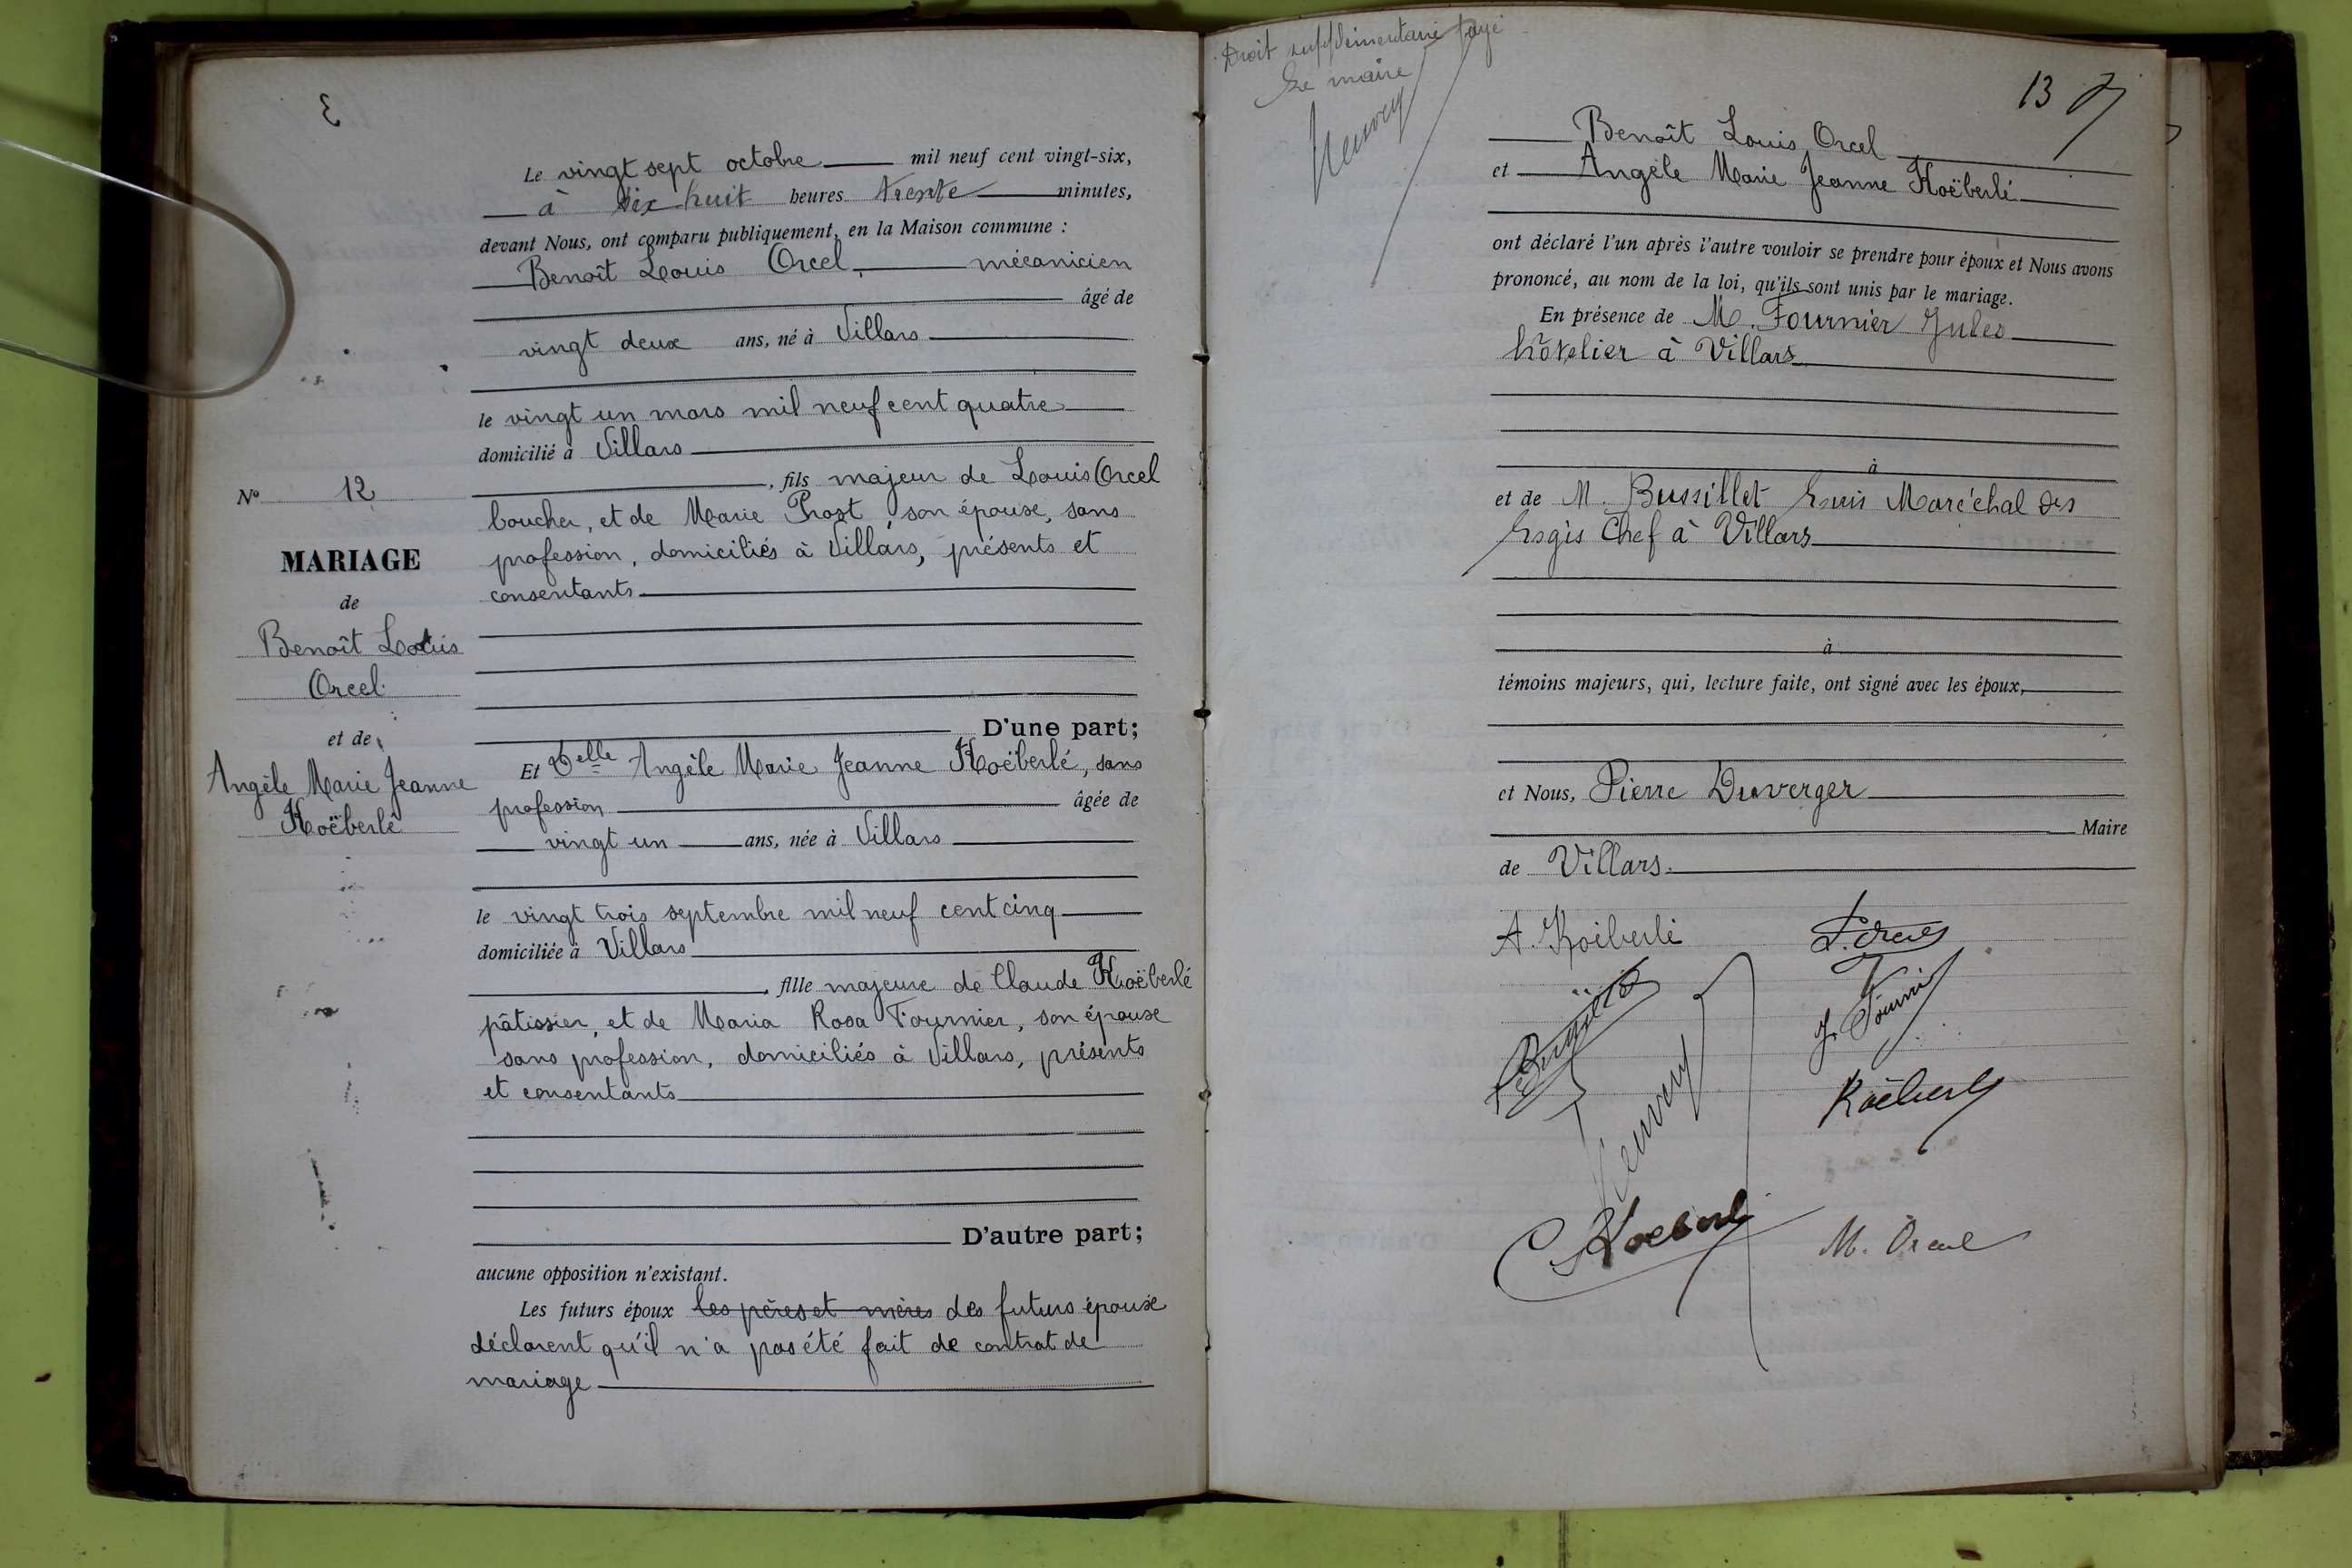 Le vingt sept octobre mil neuf cent vingt-six,
à dix huit heures trente minutes,
devant Nous, ont comparu publiquement, en la Maison commune :
Benoît Louis Orcel, mécanicien
âgé de
vingt deux ans, né à Villars
le vingt un mars mil neuf cent quatre
domicilié à Villars
, fils majeur de Louis Orcel
boucher, et de Marie Prost, son épouse, sans
profession, domiciliés à Villars, présents et
consentants
D'une part;
N° 12
MARIAGE
de
Benoît Louis
Orcel
et de
Angèle Marie Jeanne
Koëberlé
Et Delle Angèle Marie Jeanne Koëberlé, sans
profession âgée de
vingt un ans, née à Villars
le vingt trois septembre mil neuf cent cinq
domiciliée à Villars
, fille majeure de Claude Koëberlé
pâtissier, et de Maria Rosa Fournier, son épouse
sans profession, domiciliés à Villars, présents
et consentants
D'autre part;
aucune opposition n'existant.
Les futurs époux les pères et mères des futurs épouse
déclarent qu'il n'a pas été fait de contrat de
mariage
Droit supplémentaire payé
Le maire
13
Benoît Louis Orcel
et Angèle Marie Jeanne Koëberlé
ont déclaré l'un après l'autre vouloir se prendre pour époux et Nous avons
prononcé, au nom de la loi, qu'ils sont unis par le mariage.
En présence de M. Fournier Jules
hôtelier à Villars
à
et de M. Bussillet Louis Maréchal des
Logis Chef à Villars
à
témoins majeurs, qui, lecture faite, ont signé avec les époux,
et Nous, Pierre Duverger
Maire
de Villars.
A. Koëberlé
L. Orcel
J. Fournier
Koëberlé
C. Koeberlé
M. Orcel